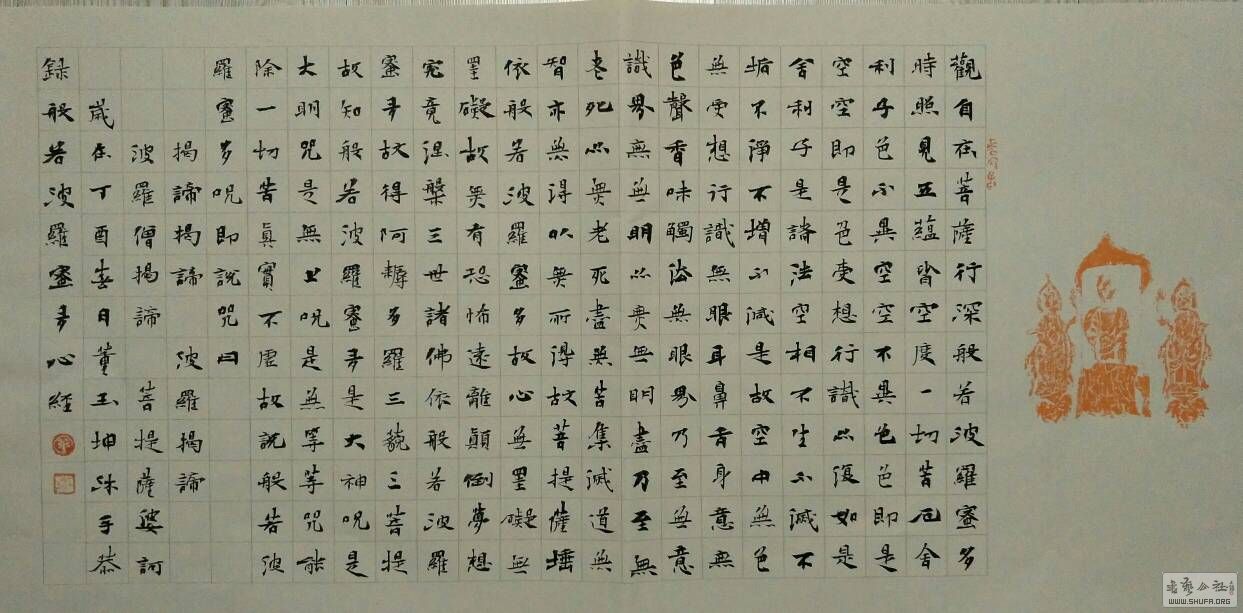 觀自在菩薩行深般若波羅蜜多
時照見五蘊皆空度一切苦厄舍
利子色不異空空不異色色即是
空空即是色受想行識亦復如是
舍利子是諸法空相不生不滅不
垢不淨不增不減是故空中無色
無受想行識無眼耳鼻舌身意無
色聲香味觸法無眼界乃至無意
識界無無明亦無無明盡乃至無
老死亦無老死盡無苦集滅道無
智亦無得以無所得故菩提薩埵
依般若波羅蜜多故心無罣礙無
罣礙故無有恐怖遠離顛倒夢想
究竟涅槃三世諸佛依般若波羅
蜜多故得阿耨多羅三藐三菩提
故知般若波羅蜜多是大神咒是
大明咒是無上咒是無等等咒能
除一切苦真實不虛故說般若波
羅蜜多咒即說咒曰
揭諦揭諦 波羅揭諦
波羅僧揭諦 菩提薩婆訶
歲在丁酉春日董玉坤沐手恭
錄般若波羅蜜多心經
WWW.SHUFA.ORG